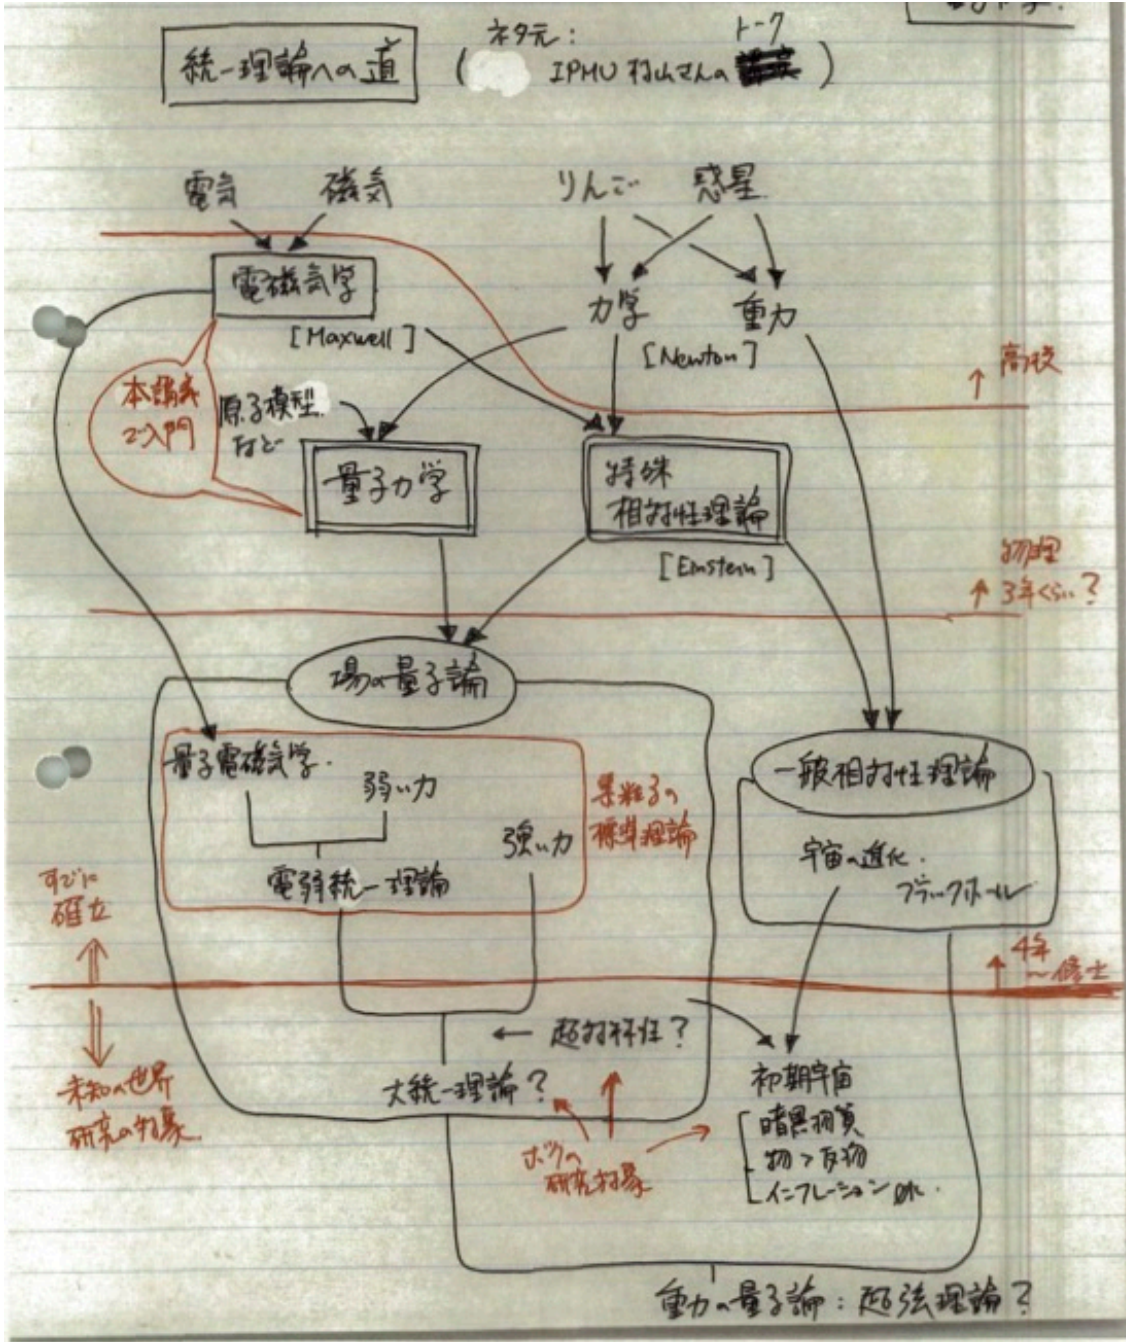 統一理論への道
(ネタ元: IPMU 村山さんのトーク)
電気 磁気
りんご 惑星
電磁気学
[Maxwell]
力学 重力
[Newton]
↑ 高校
本講義で入門
原子模型
など
量子力学
特殊
相対性理論
[Einstein]
↑ 物理
3年くらい?
場の量子論
量子電磁気学
弱い力
強い力
電弱統一理論
素粒子の
標準理論
一般相対性理論
宇宙の進化
ブラックホール
すでに
確立
↑ 4年
〜修士
← 超対称性?
大統一理論?
未知の世界
研究の対象
ボクの
研究対象
初期宇宙
暗黒物質
物>反物
インフレーション etc.
重力の量子論: 超弦理論?